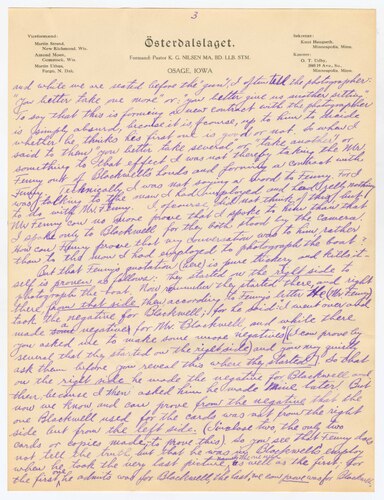 3
Viceformænd:
Martin Strand,
New Richmond, Wis.
Amund Moen,
Comstock, Wis.
Martin Ulvøn,
Fargo, N. Dak.
Österdalslaget.
Formand: Pastor K. G. NILSEN MA. BD. LLB. STM.
OSAGE, IOWA
Sekretær:
Minneapolis, Minn.
Kasserer:
O. T. Colby,
Minneapolis, Minn.
and while we are seated before the gun, I often tell the photographer
"You better take one more" or "you better give us another sitting"
To say that this is forming a new contract with the photographer
is simply absurd, because it is, of course, up to him to decide
whether he thinks his first one is good or not. So when I
said to them "you better take several, or take another, or
something to that effect I was not thereby taking Mr
Fenny out of Blackwell's hands and forming a contract with
Fenny. Technically I was not doing a thing to Fenny, for I
was talking to the man I had employed and had nothing
to do with Mr Fenny. I did not think of this, but
Mr Fenny can no more prove that I spoke to him than that
I spoke only to Blackwell for they both stood by the camera.
How can Fenny prove that my conversation was to him rather
than to the man I had employed to photograph the boat?
But that Fenny's question (here) is pure trickery and kills it-
self is proven as follows: They started on the right side to
photograph the boat. Now remember they started there and right
there from that side then according to Fenny's letter He (Mr Fenny)
took the negative for Blackwell; for he said: "I went over and
made some negatives for Mr Blackwell and while there
you asked me to make some more negatives" (I can prove by
several that they started on the right side, and you may quietly
ask them before you reveal this where they started.) So that
on the right side he made the negative for Blackwell and
there, because I then asked him he made mine later. But
now we know and can prove from the negative that the
one Blackwell used for the cards was not from the right
side but from the left side. (I inclose two, the only two
cards or copies made, to prove this). So you see that Fenny does
not tell the truth, but that he was in Blackwell's employ
when he took the very last picture as well as the first. For
the first one, he admits was for Blackwell, the last, we can prove was for Blackwell